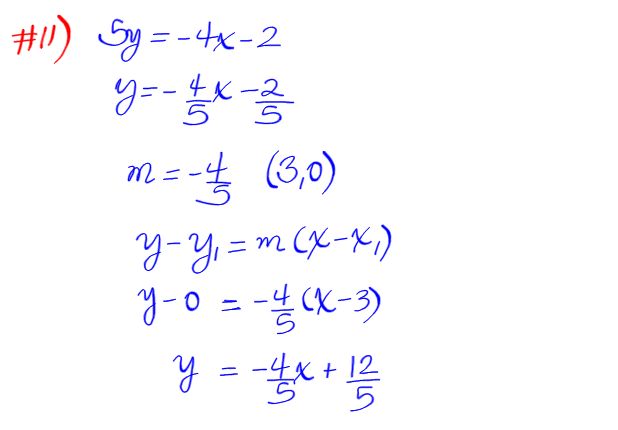 #11) 5y = -4x - 2
y = -4/5 x - 2/5
m = -4/5 (3,0)
y - y₁ = m (x - x₁)
y - 0 = -4/5 (x - 3)
y = -4/5 x + 12/5